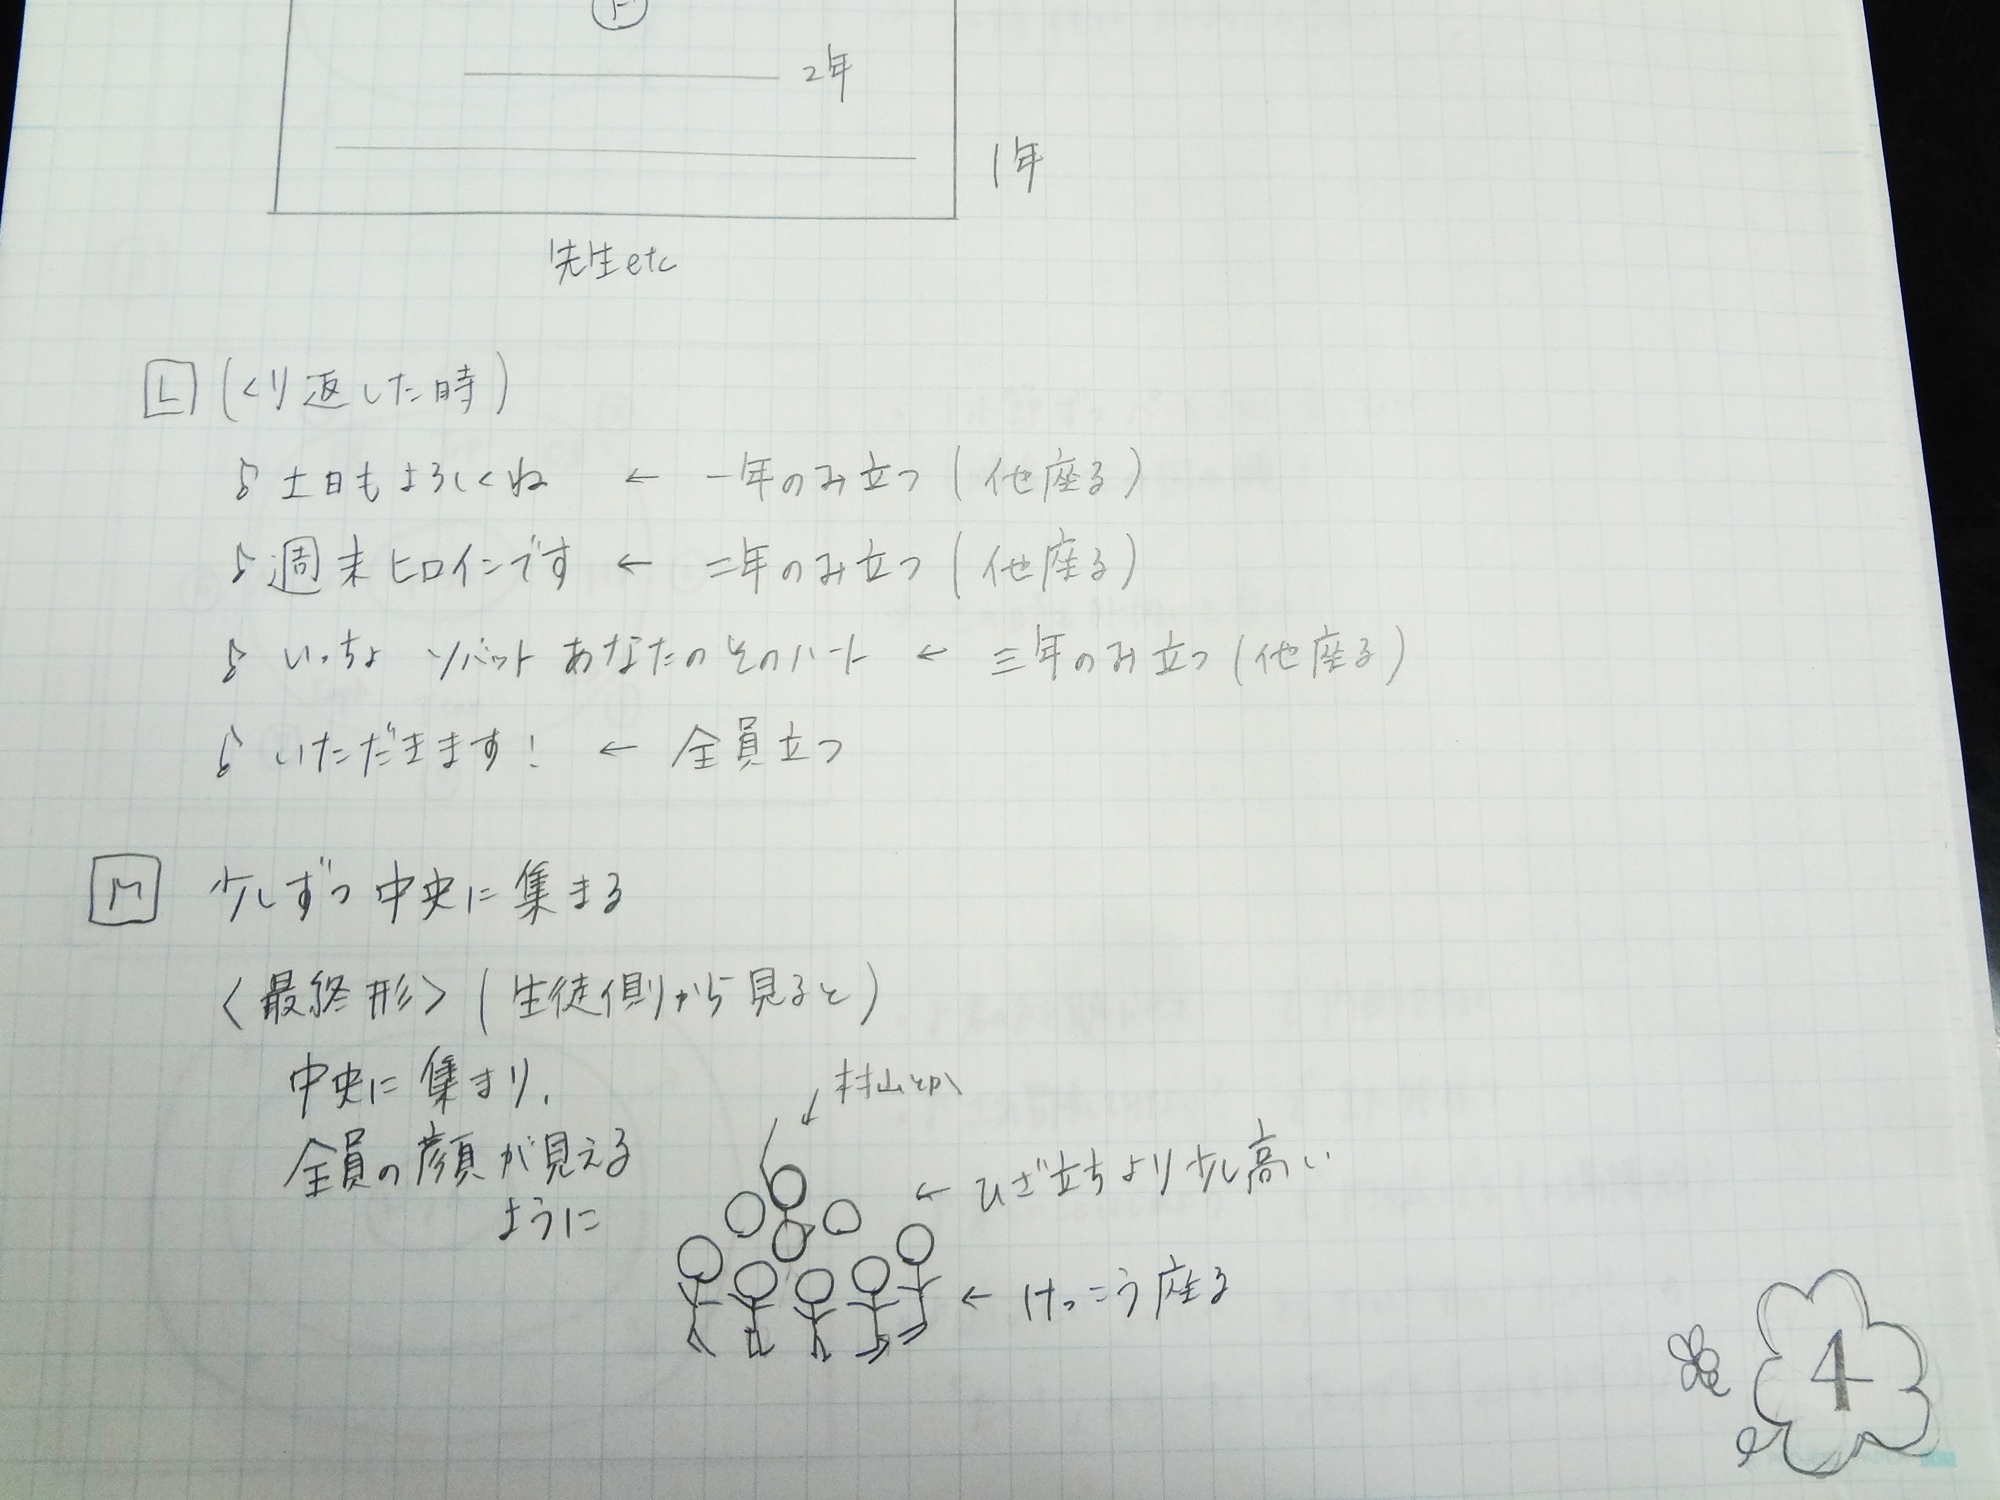 2年
1年
先生etc
L (くり返した時)
♪ 土日もよろしくね ← 一年のみ立つ (他座る)
♪ 週末ヒロインです ← 二年のみ立つ (他座る)
♪ いっちょ ソバット あなたのそのハート ← 三年のみ立つ (他座る)
♪ いただきます! ← 全員立つ
M 少しずつ中央に集まる
<最終形> (生徒側から見ると)
中央に集まり、
全員の顔が見える
ように
村山とか
← ひざ立ちより少し高い
← けっこう座る
4